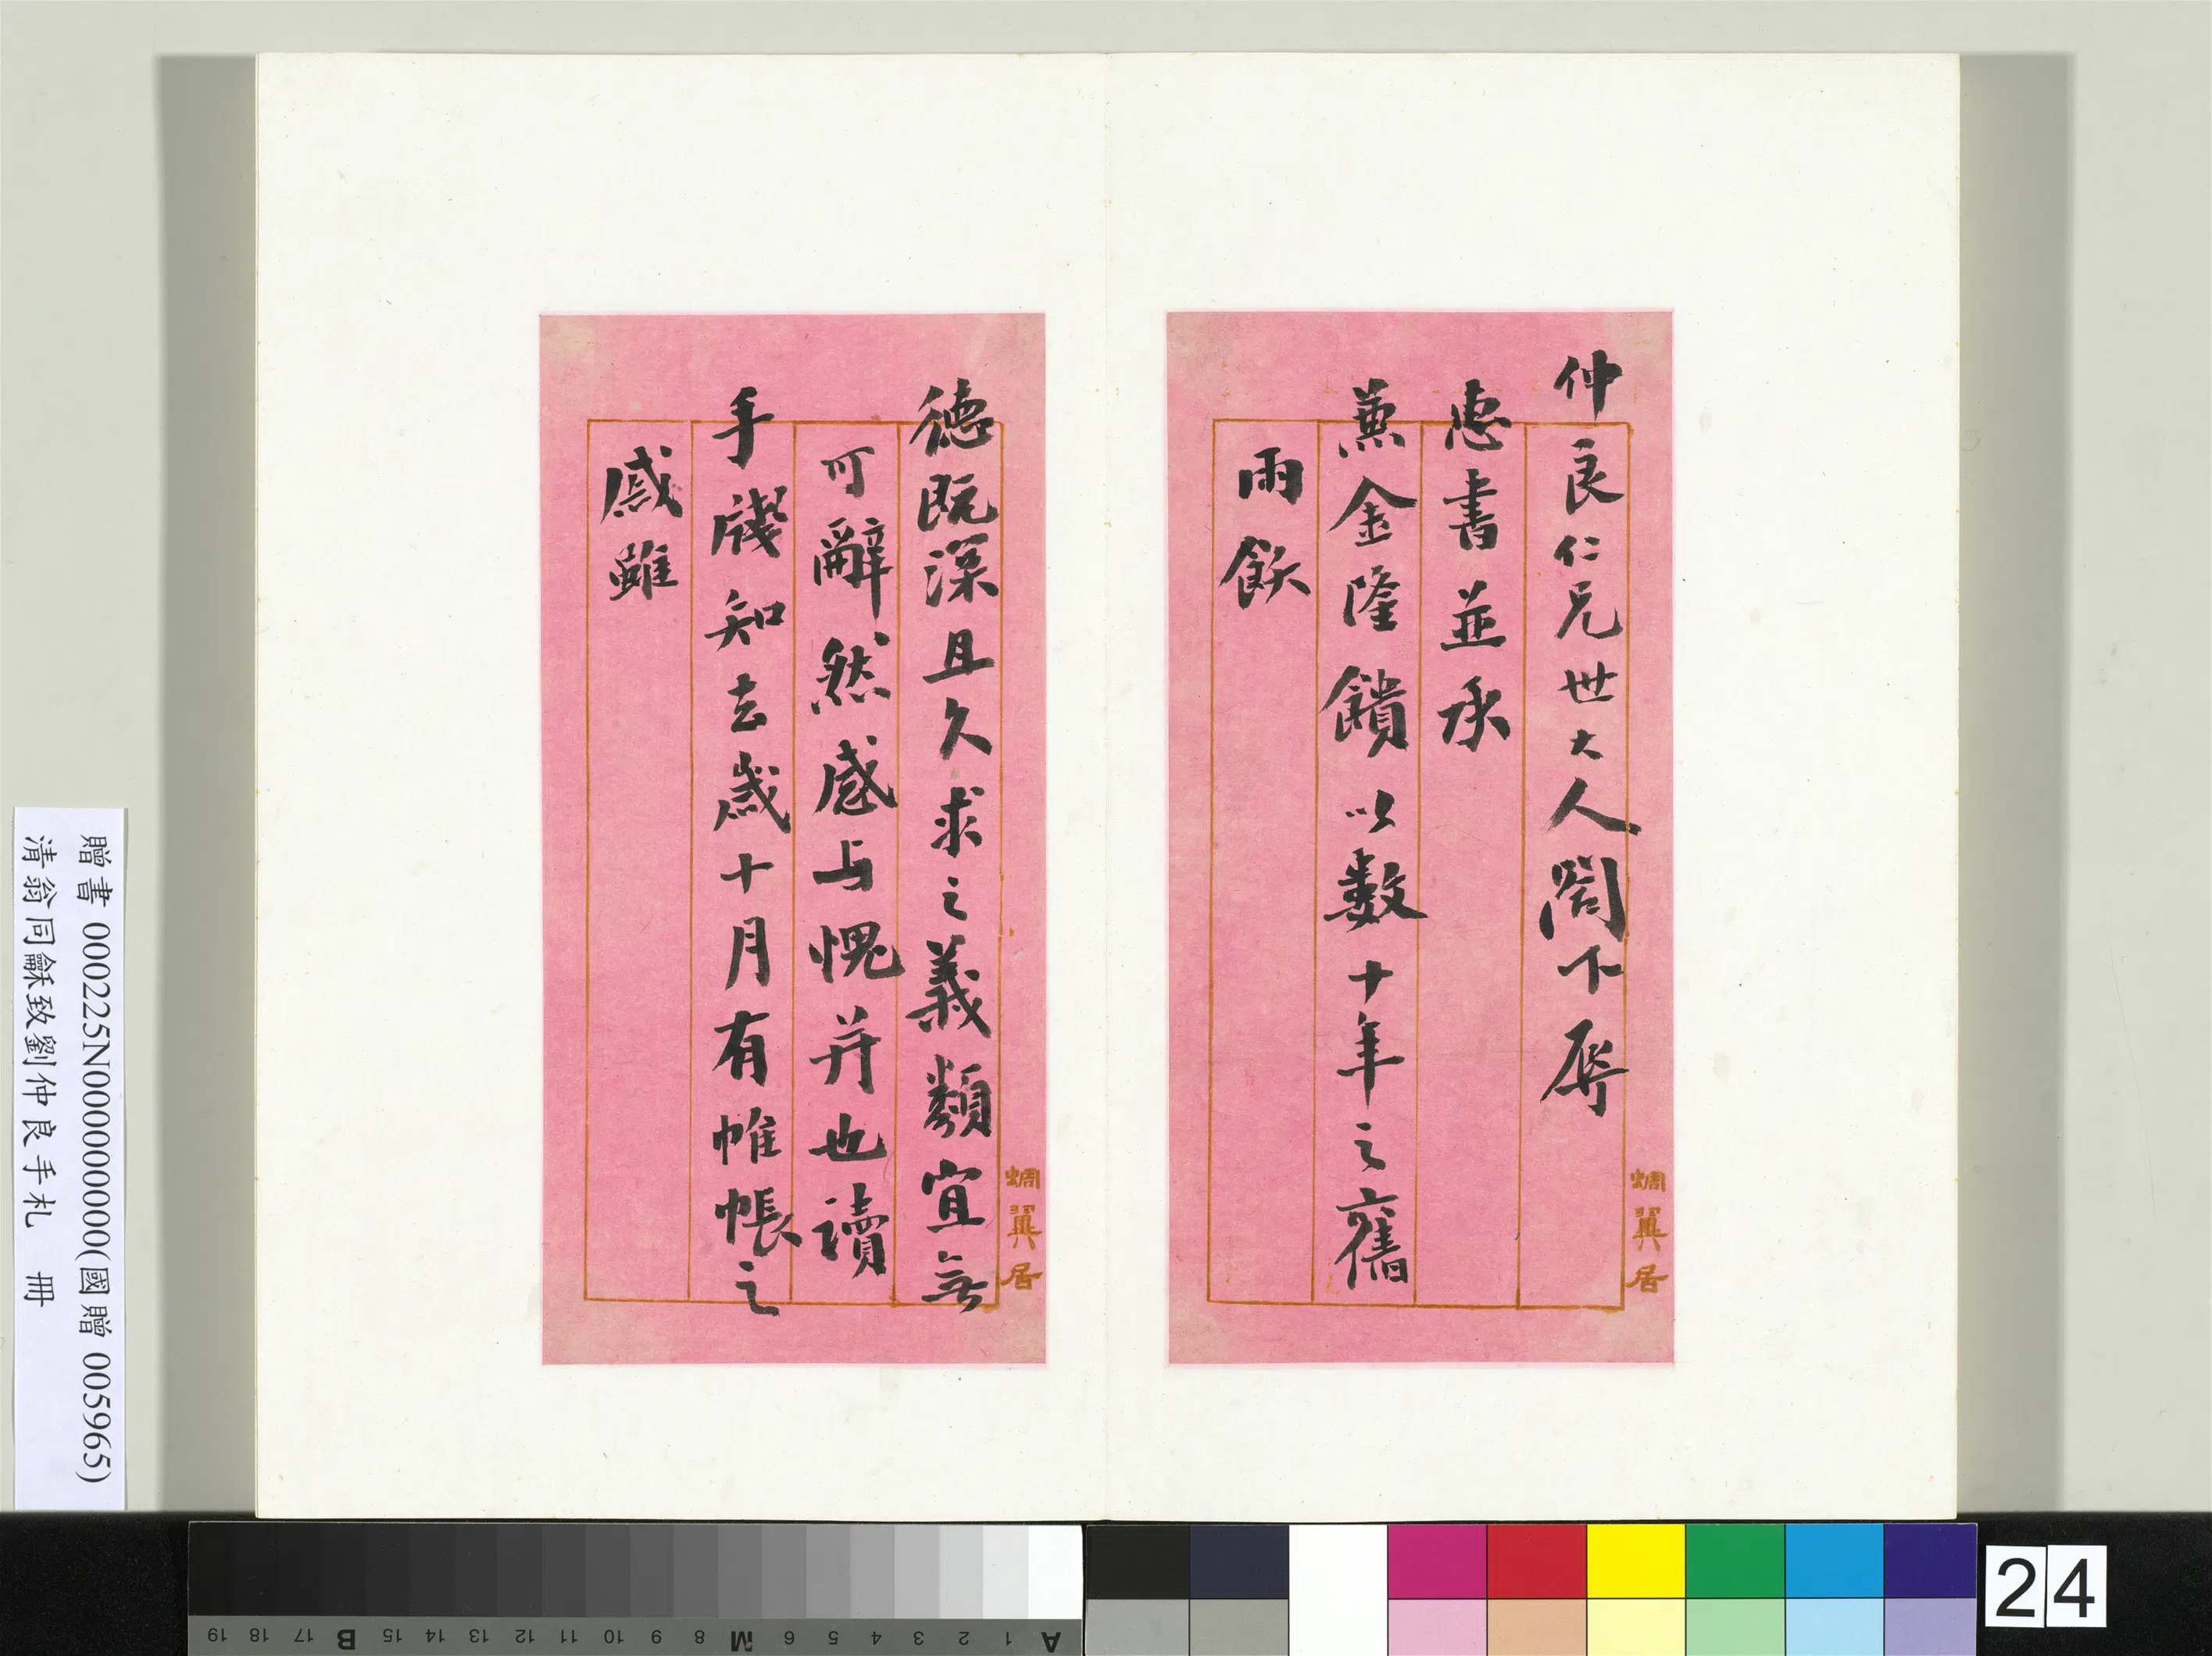 仲良仁兄世大人閣下辱
惠書並承
兼金隆饋以數十年之舊
雨飫
蜩翼居
德既深且久求之義類宜無
可辭然感与愧并也讀
手牋知去歲十月有帷帳之
戚雖
蜩翼居
贈書 000225N000000000(國贈 005965)
清翁同龢致劉仲良手札 冊
A 1 2 3 4 5 6 M 8 9 10 11 12 13 14 15 B 17 18 19
24